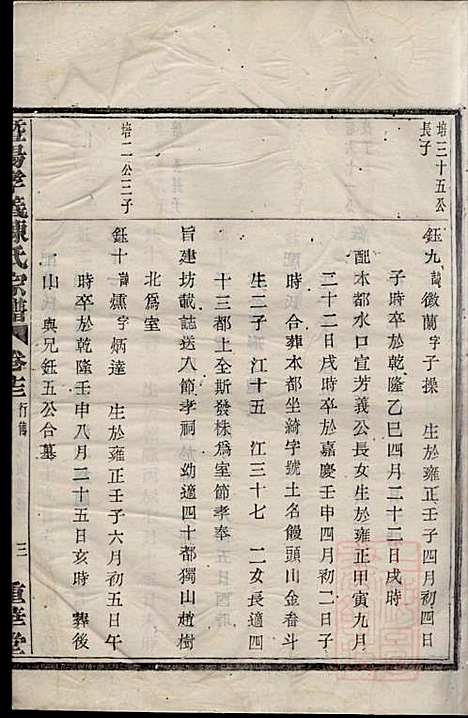 培三十五公
長子
鈺九諱徽蘭字子操　生於雍正壬子四月初四日
子時卒於乾隆乙巳四月二十二日戌時
配本都水口宣芳義公長女生於雍正甲寅九月
二十二日戌時卒於嘉慶壬申四月初二日子
時　合葬本都坐綺字號土名饅頭山金畚斗
生二子　江十五　江三十七　二女長適四
十三都上全斯發株爲室節孝奉
旨建坊載誌送入節孝祠　幼適四十都獨山趙樹
北爲室
培二公三子
鈺十諱燻字炳達　生於雍正壬子六月初五日午
時卒於乾隆壬申八月二十五日亥時　葬後
山　與兄鈺五公合墓
暨陽孝義陳氏宗譜
卷十三
行傳
三
重華堂